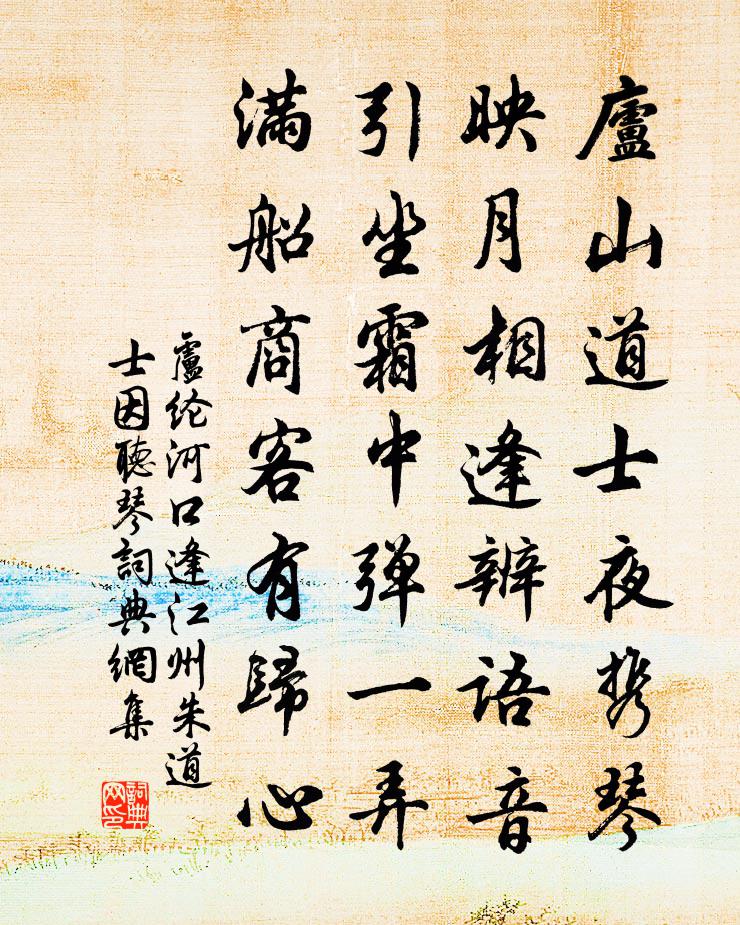 廬山道士夜携琴
映月相逢辨语音
引坐霜中弹一弄
满船商客有歸心
盧纶河口逢江州朱道
士因聽琴詞典網集
詞典
网印